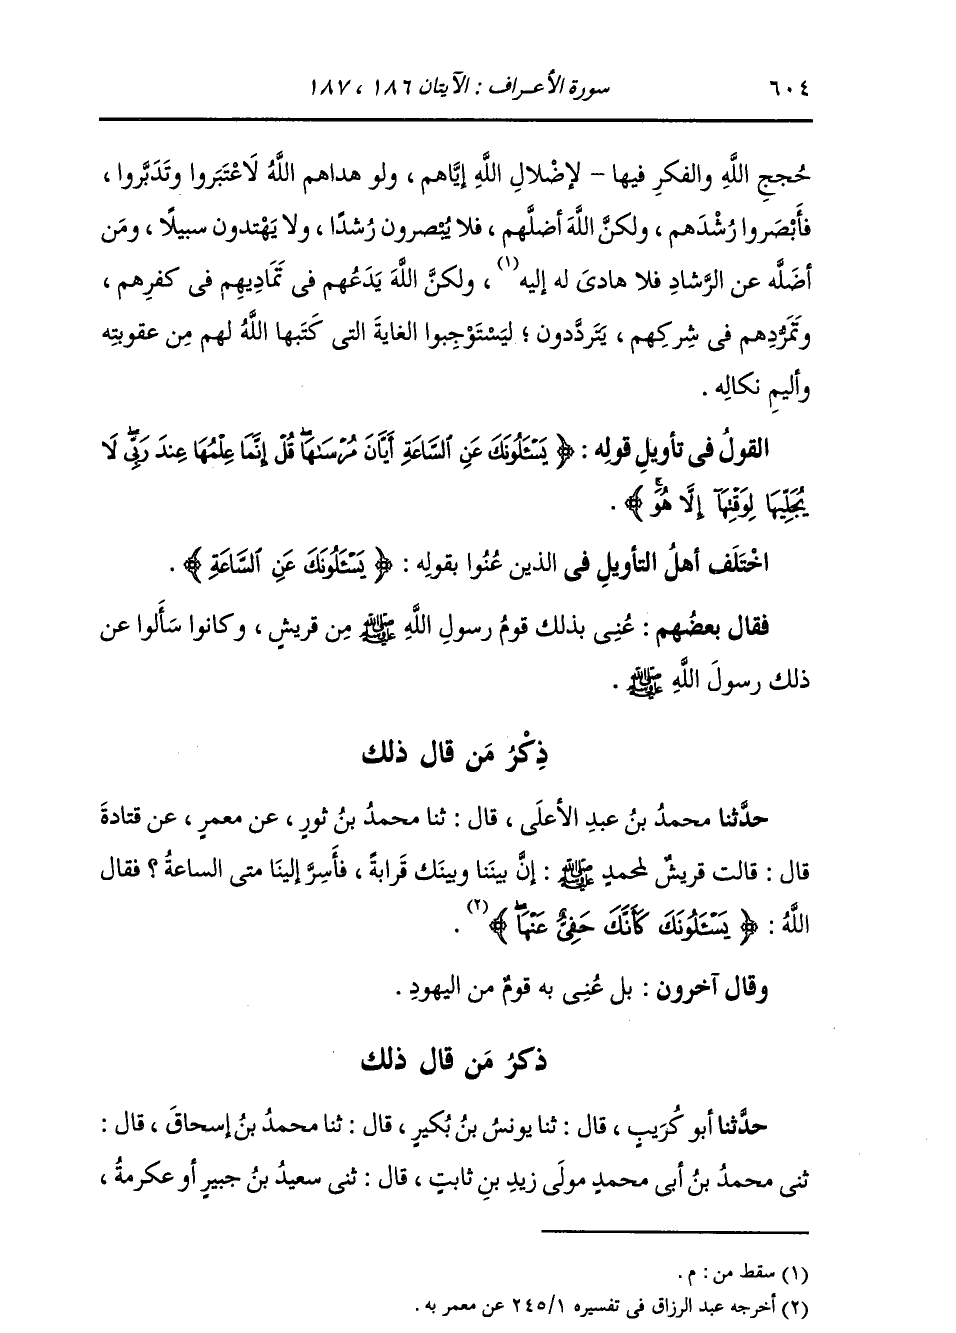 ٦٠٤ سورة الأعراف : الآيتان ١٨٦ ، ١٨٧
حُججِ اللَّهِ والفكرِ فيها - لإضْلالِ اللَّهِ إيَّاهم ، ولو هداهم اللَّهُ لَاعْتَبَروا وتَدَبَّروا ،
فأَبْصَروا رُشْدَهم ، ولكنَّ اللَّهَ أضلَّهم ، فلا يُبْصرون رُشدًا ، ولا يَهْتدون سبيلًا ، ومَن
أضَلَّه عن الرَّشادِ فلا هادىَ له إليه(١) ، ولكنَّ اللَّهَ يَدَعُهم فى تَمَادِيهِم فى كفرِهم ،
وتَمَرُّدِهم فى شِركِهم ، يَتَردَّدون ؛ ليَسْتَوْجِبوا الغايةَ التى كَتَبها اللَّهُ لهم مِن عقوبتِه
وأليمِ نكالِه .
القولُ فى تأويلِ قولِه : ﴿ يَسْـَٔلُونَكَ عَنِ ٱلسَّاعَةِ أَيَّانَ مُرْسَىٰهَا ۖ قُلْ إِنَّمَا عِلْمُهَا عِندَ رَبِّى ۖ لَا
يُجَلِّيهَا لِوَقْتِهَآ إِلَّا هُوَ ۚ ﴾ .
اخْتَلَف أهلُ التأويلِ فى الذين عُنُوا بقولِه : ﴿ يَسْـَٔلُونَكَ عَنِ ٱلسَّاعَةِ ﴾ .
فقال بعضُهم : عُنِى بذلك قومُ رسولِ اللَّهِ ﷺ مِن قريشٍ ، وكانوا سَأَلوا عن
ذلك رسولَ اللَّهِ ﷺ .
ذِكْرُ مَن قال ذلك
حدَّثنا محمدُ بنُ عبدِ الأعلَى ، قال : ثنا محمدُ بنُ ثورٍ ، عن معمرٍ ، عن قتادةَ
قال : قالت قريشٌ لمحمدٍ ﷺ : إنَّ بينَنا وبينَك قَرابةً ، فأَسِرَّ إلينَا متى الساعةُ ؟ فقال
اللَّهُ : ﴿ يَسْـَٔلُونَكَ كَأَنَّكَ حَفِىٌّ عَنْهَا ۖ ﴾(٢) .
وقال آخرون : بل عُنِى به قومٌ من اليهودِ .
ذكرُ مَن قال ذلك
حدَّثنا أبو كُرَيبٍ ، قال : ثنا يونسُ بنُ بُكيرٍ ، قال : ثنا محمدُ بنُ إسحاقَ ، قال :
ثنى محمدُ بنُ أبى محمدٍ مولَى زيدِ بنِ ثابتٍ ، قال : ثنى سعيدُ بنُ جبيرٍ أو عكرمةُ ،
(١) سقط من : م .
(٢) أخرجه عبد الرزاق فى تفسيره ٢٤٥/١ عن معمر به .